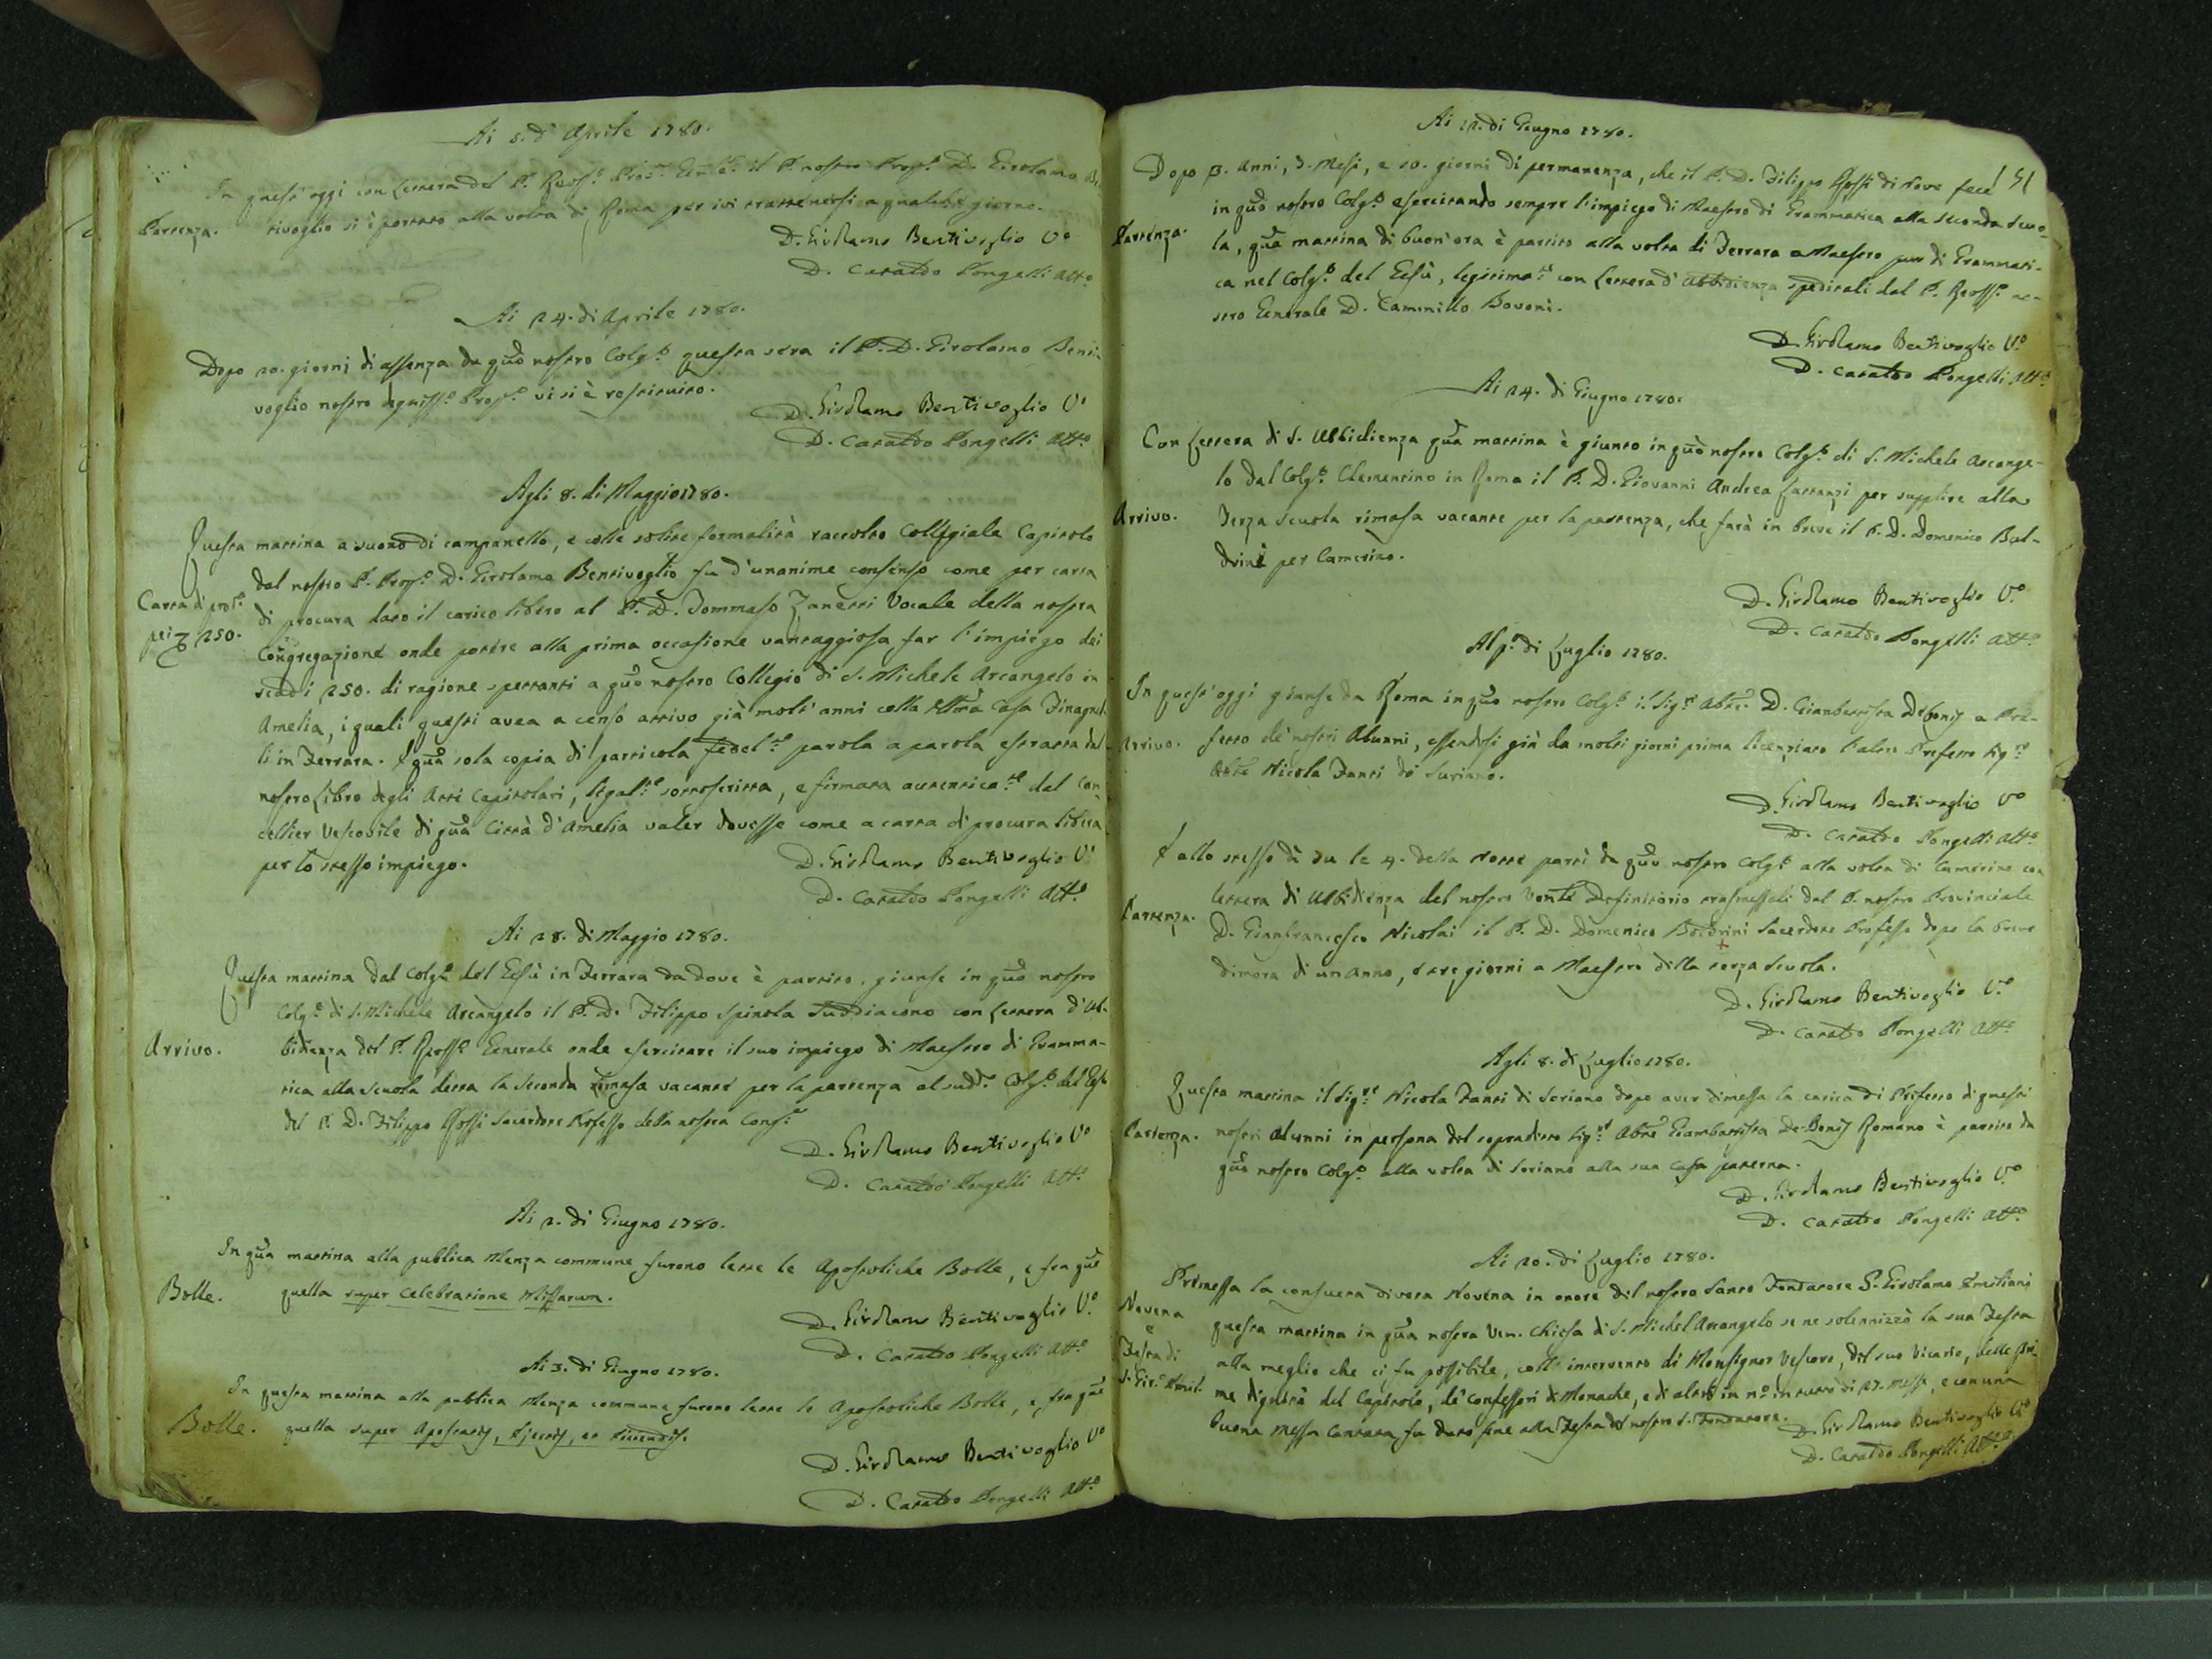 Ai 5. d' Aprile 1780.
In quest'oggi con Lettera del P. Revss.º il P. nostro Prop.º D. Girolamo Ben-
Partenza.
tivoglio si è portato alla volta di Roma per ivi trattenersi a qualche giorno.
D. Girolamo Bentivoglio Vº
D. Cataldo Pongelli Attº
Ai 24. di Aprile 1780.
Dopo 20. giorni di assenza da qũo nostro Colgº questa sera il P. D. Girolamo Benti-
voglio nostro Prop.º vi si è restituito.
D. Girolamo Bentivoglio Vº
D. Cataldo Pongelli Attº
Agli 8. di Maggio 1780.
Questa mattina a suono di campanello, e colle solite formalità raccolto Collegiale Capitolo
dal nostro P. Prop.º D. Girolamo Bentivoglio fu d'unanime consenso come per carta
Carta di proc.
pei 250.
di procura dato il carico libero al P. D. Tommaso Zanetti Vocale della nostra
Congregazione onde potere alla prima occasione vantaggiosa far l'impiego dei
scudi 250. di ragione spettanti a qũo nostro Collegio di S. Michele Arcangelo in
Amelia, i quali questi avea a censo attivo già molt'anni colla Casa
li in Ferrara. E qũa sola copia di particola fedel.te parola a parola estratta dal
nostro Libro degli Atti Capitolari, legal.te sottoscritta, e firmata autentica.te dal Can-
cellier Vescovile di qũa Città d'Amelia valer dovesse come a carta di procura libera
per lo stesso impiego.
D. Girolamo Bentivoglio Vº
D. Cataldo Pongelli Attº
Ai 28. di Maggio 1780.
Questa mattina dal Colgº del Gesù in Ferrara da dove è partito, giunse in qũo nostro
Colgº di S. Michele Arcangelo il P. D. Filippo Spinola Suddiacono con Lettera d'Ub-
Arrivo.
bidienza del P. Revss.º Generale onde esercitare il suo impiego di Maestro di Gramma-
tica alla scuola detta la Seconda rimasa vacante per la partenza al sudd.º Colgº del Gesù
del P. D. Filippo Rossi Sacerdote Professo della nostra Cong.e
D. Girolamo Bentivoglio Vº
D. Cataldo Pongelli Attº
Ai 2. di Giugno 1780.
In qũa mattina alla publica Menza commune furono lette le Apostoliche Bolle, e fra qũe
Bolle.
quella super Celebratione Missarum.
D. Girolamo Bentivoglio Vº
D. Cataldo Pongelli Attº
Ai 3. di Giugno 1780.
In questa mattina alla publica Menza commune furono lette le Apostoliche Bolle, e fra qũe
Bolle.
quella super Apostatis, Ejectis, et
D. Girolamo Bentivoglio Vº
D. Cataldo Pongelli Attº
Ai 12. di Giugno 1780.
151
Dopo 3. Anni, 3. Mesi, e 10. giorni di permanenza, che il P. D. Filippo Rossi di Nove fece
in qũo nostro Colgº esercitando sempre l'impiego di Maestro di Grammatica alla seconda Scuo-
Partenza.
la, qũa mattina di buon'ora è partito alla volta di Ferrara a Maestro pur di Grammati-
ca nel Colgº del Gesù, legittima.te con Lettera d'Ubbidienza speditali dal P. Revss.º no-
stro Generale D. Cammillo Bovoni.
D. Girolamo Bentivoglio Vº
D. Cataldo Pongelli Attº
Ai 24. di Giugno 1780.
Con Lettera di S. Ubbidienza qũa mattina è giunto in qũo nostro Colgº di S. Michele Arcange-
lo dal Colgº Clementino in Roma il P. D. Giovanni Andrea per supplire alla
Arrivo.
Terza Scuola rimasa vacante per la partenza, che farà in breve il P. D. Domenico Bal-
drini per Camerino.
D. Girolamo Bentivoglio Vº
D. Cataldo Pongelli Attº
Al pº di Luglio 1780.
In quest'oggi giunse da Roma in qũo nostro Colgº il Sig.r Abbe. D. Giambattista Debonis a Pre-
Arrivo.
fetto de' nostri Alunni, essendosi già da molti giorni prima licenziato l'altro Prefetto Sig.re
Abbe Nicola Fanti di Suriano.
D. Girolamo Bentivoglio Vº
D. Cataldo Pongelli Attº
E allo stesso dì su le 4. della Notte partì da qũo nostro Colgº alla volta di Camerino con
lettera di Ubbidienza del nostro Vente Definitorio trasmessali dal P. nostro Provinciale
Partenza.
D. Gianfrancesco Nicolai il P. D. Domenico Bocdrini Sacerdote Professo dopo la breve
dimora di un anno, e tre giorni a Maestro della terza Scuola.
D. Girolamo Bentivoglio Vº
D. Cataldo Pongelli Attº
Agli 8. di Luglio 1780.
Questa mattina il Sig.re Nicola Fanti di Soriano dopo aver dimessa la carica di Prefetto di questi
Partenza.
nostri Alunni in persona del sopradetto Sig.re Abbe Giambattista De-Bonis Romano è partito da
qũo nostro Colgº alla volta di Soriano alla sua Casa paterna.
D. Girolamo Bentivoglio Vº
D. Cataldo Pongelli Attº
Ai 20. di Luglio 1780.
Premessa la consueta divota Novena in onore del nostro Santo Fondatore S. Girolamo Emiliani
Novena
e
Festa di
S. Gir.º Emil.
questa mattina in qũa nostra Ven. Chiesa di S. Michel Arcangelo se ne solennizzò la sua Festa
alla meglio che ci fu possibile, coll'intervento di Monsignor Vescovo, del suo Vicario, delle pri-
me dignità del Capitolo, de' Confessori di Monache, e di altri in nº in tutto di 27. Messe, e con una
buona Messa Cantata fu dato fine alla Festa del nostro S. Fondatore.
D. Girolamo Bentivoglio Vº
D. Cataldo Pongelli Attº